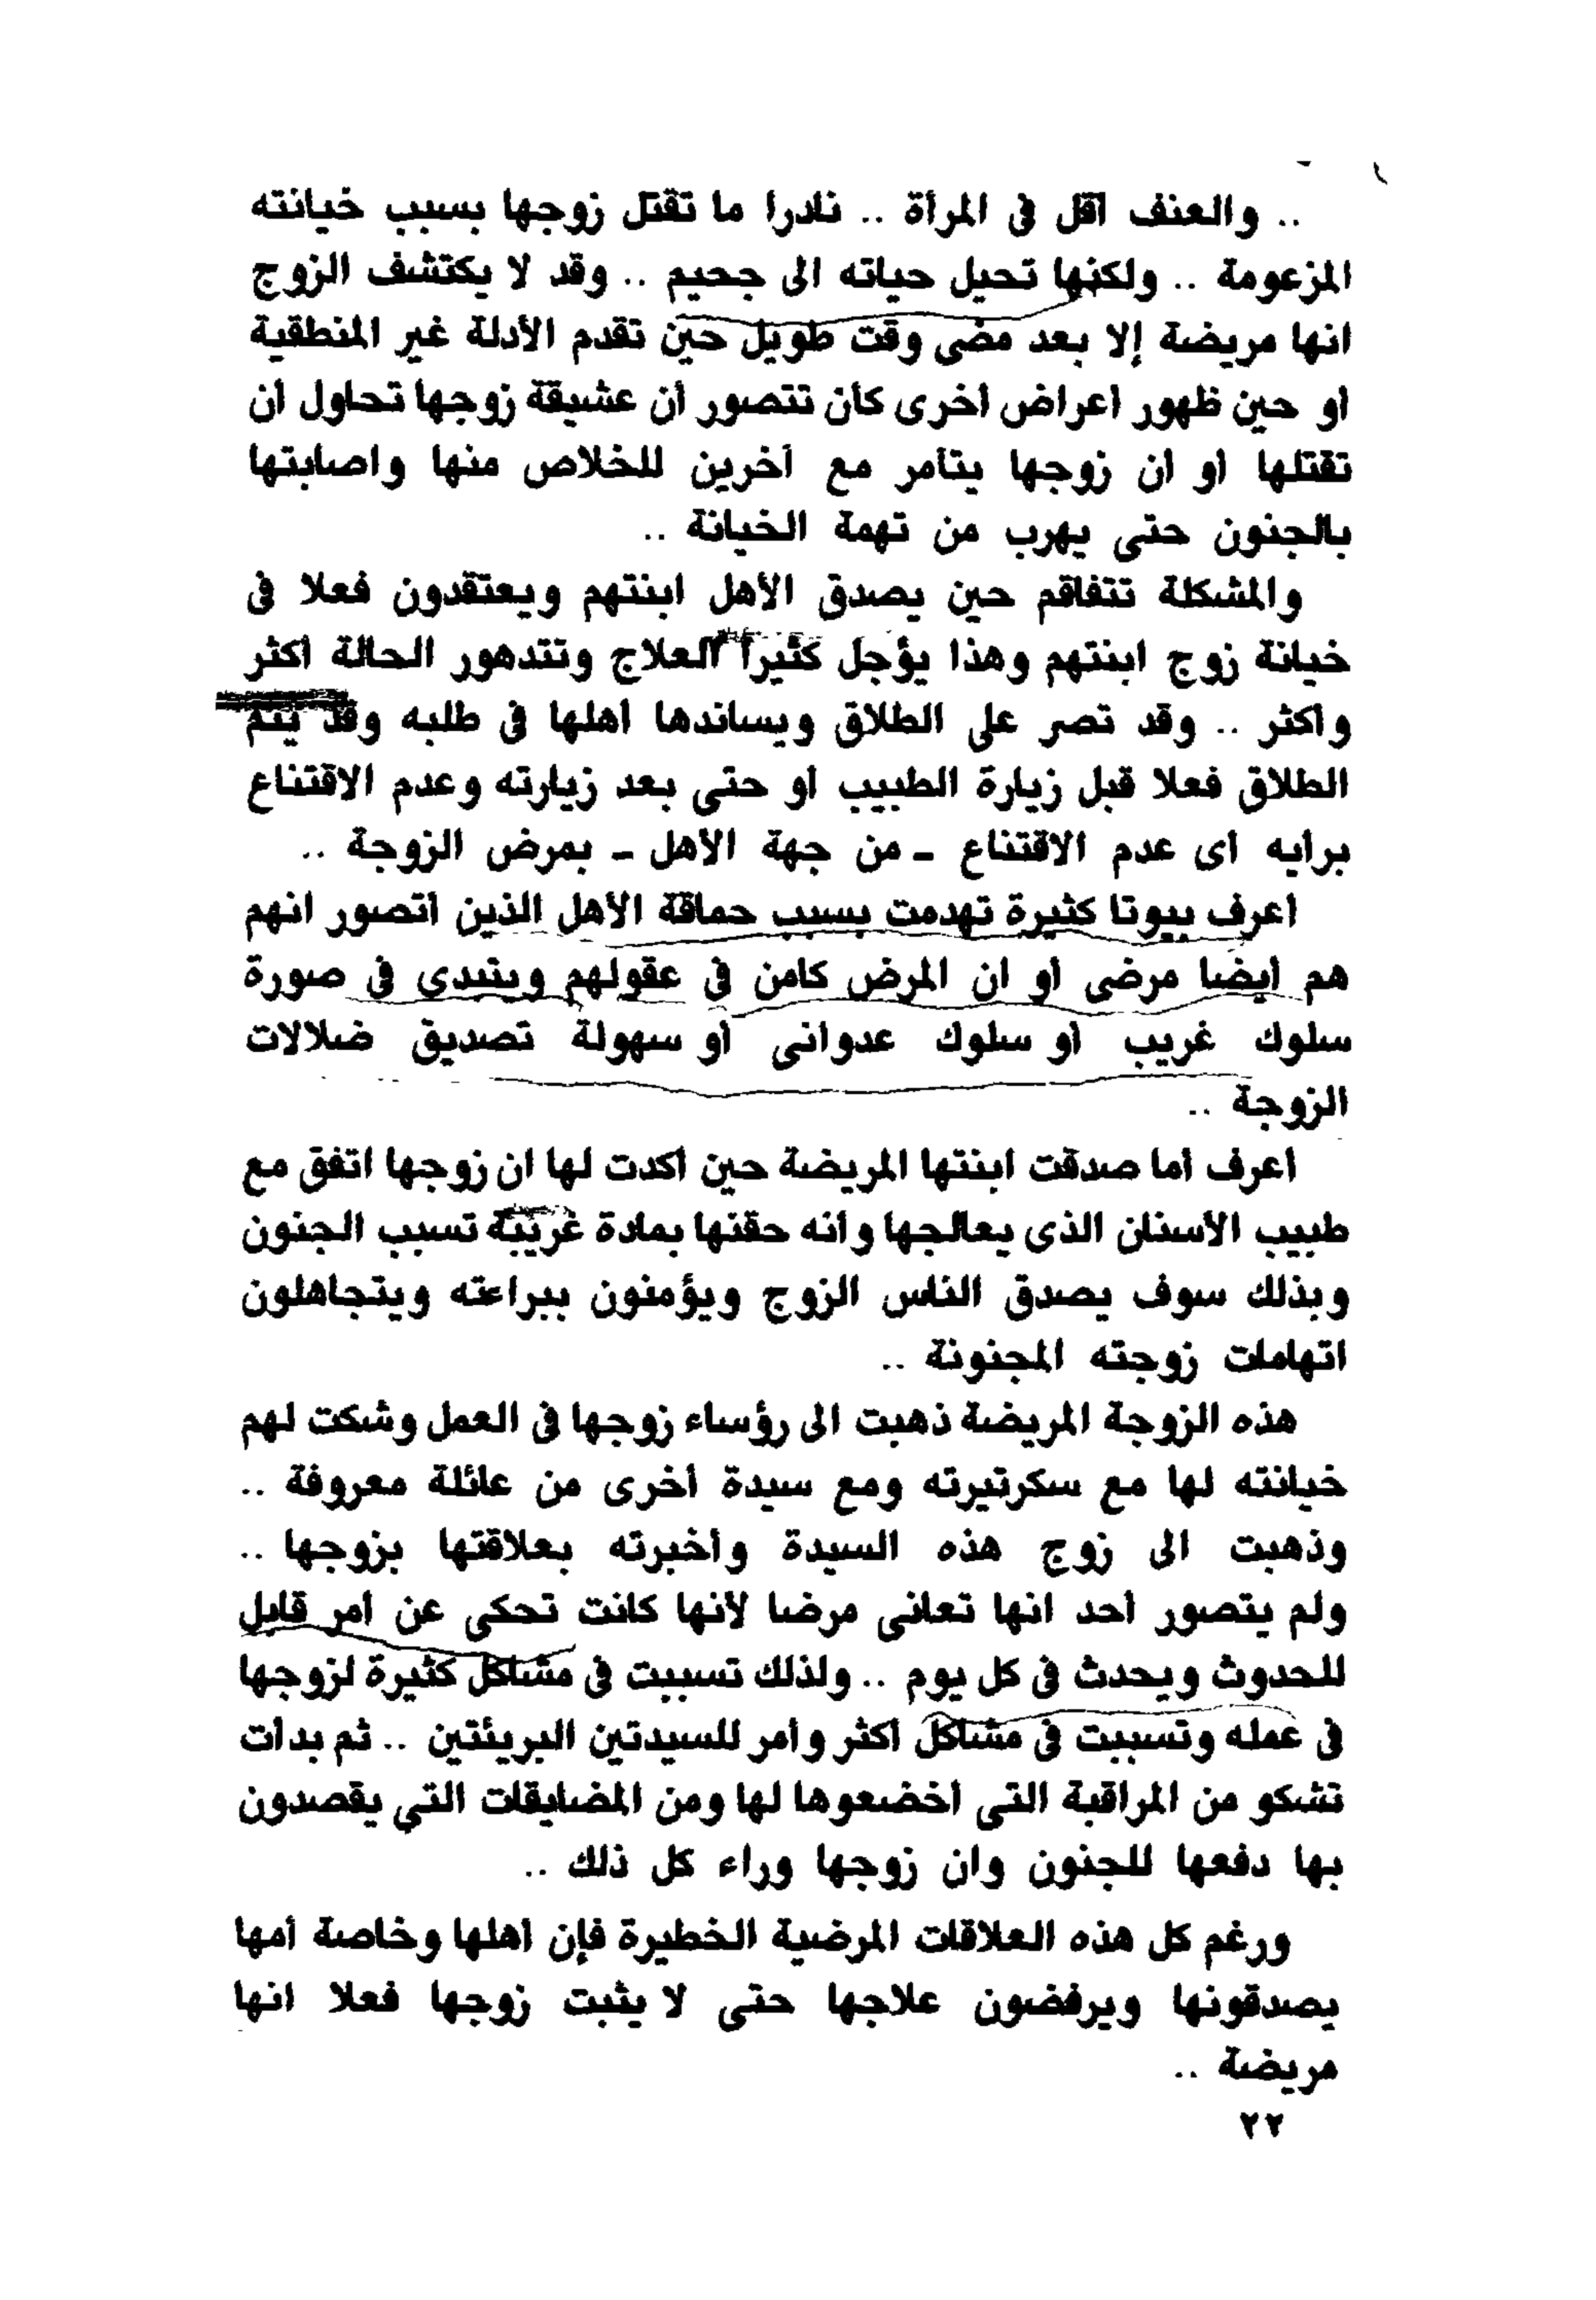 .. والعنف أقل فى المرأة .. نادرا ما تقتل زوجها بسبب خيانته
المزعومة .. ولكنها تحيل حياته الى جحيم .. وقد لا يكتشف الزوج
انها مريضة إلا بعد مضى وقت طويل حين تقدم الأدلة غير المنطقية
أو حين ظهور أعراض أخرى كأن تتصور أن عشيقة زوجها تحاول أن
تقتلها أو أن زوجها يتآمر مع آخرين للخلاص منها واصابتها
بالجنون حتى يهرب من تهمة الخيانة ..
والمشكلة تتفاقم حين يصدق الأهل ابنتهم ويعتقدون فعلا فى
خيانة زوج ابنتهم وهذا يؤجل كثيرا العلاج وتتدهور الحالة أكثر
وأكثر .. وقد تصر على الطلاق ويساندها أهلها فى طلبه وقد يتم
الطلاق فعلا قبل زيارة الطبيب أو حتى بعد زيارته وعدم الاقتناع
برأيه أى عدم الاقتناع ـ من جهة الأهل ـ بمرض الزوجة ..
أعرف بيوتا كثيرة تهدمت بسبب حماقة الأهل الذين أتصور انهم
هم أيضا مرضى أو ان المرض كامن فى عقولهم ويتبدى فى صورة
سلوك غريب أو سلوك عدوانى أو سهولة تصديق ضلالات
الزوجة ..
أعرف أما صدقت ابنتها المريضة حين أكدت لها ان زوجها اتفق مع
طبيب الأسنان الذى يعالجها وأنه حقنها بمادة غريبة تسبب الجنون
وبذلك سوف يصدق الناس الزوج ويؤمنون ببراءته ويتجاهلون
اتهامات زوجته المجنونة ..
هذه الزوجة المريضة ذهبت الى رؤساء زوجها فى العمل وشكت لهم
خيانته لها مع سكرتيرته ومع سيدة أخرى من عائلة معروفة ..
وذهبت الى زوج هذه السيدة وأخبرته بعلاقتها بزوجها ..
ولم يتصور أحد انها تعانى مرضا لأنها كانت تحكى عن أمر قابل
للحدوث ويحدث فى كل يوم .. ولذلك تسببت فى مشاكل كثيرة لزوجها
فى عمله وتسببت فى مشاكل أكثر وأمر للسيدتين البريئتين .. ثم بدأت
تشكو من المراقبة التى أخضعوها لها ومن المضايقات التي يقصدون
بها دفعها للجنون وان زوجها وراء كل ذلك ..
ورغم كل هذه العلاقات المرضية الخطيرة فإن أهلها وخاصة أمها
يصدقونها ويرفضون علاجها حتى لا يثبت زوجها فعلا انها
مريضة ..
٢٢